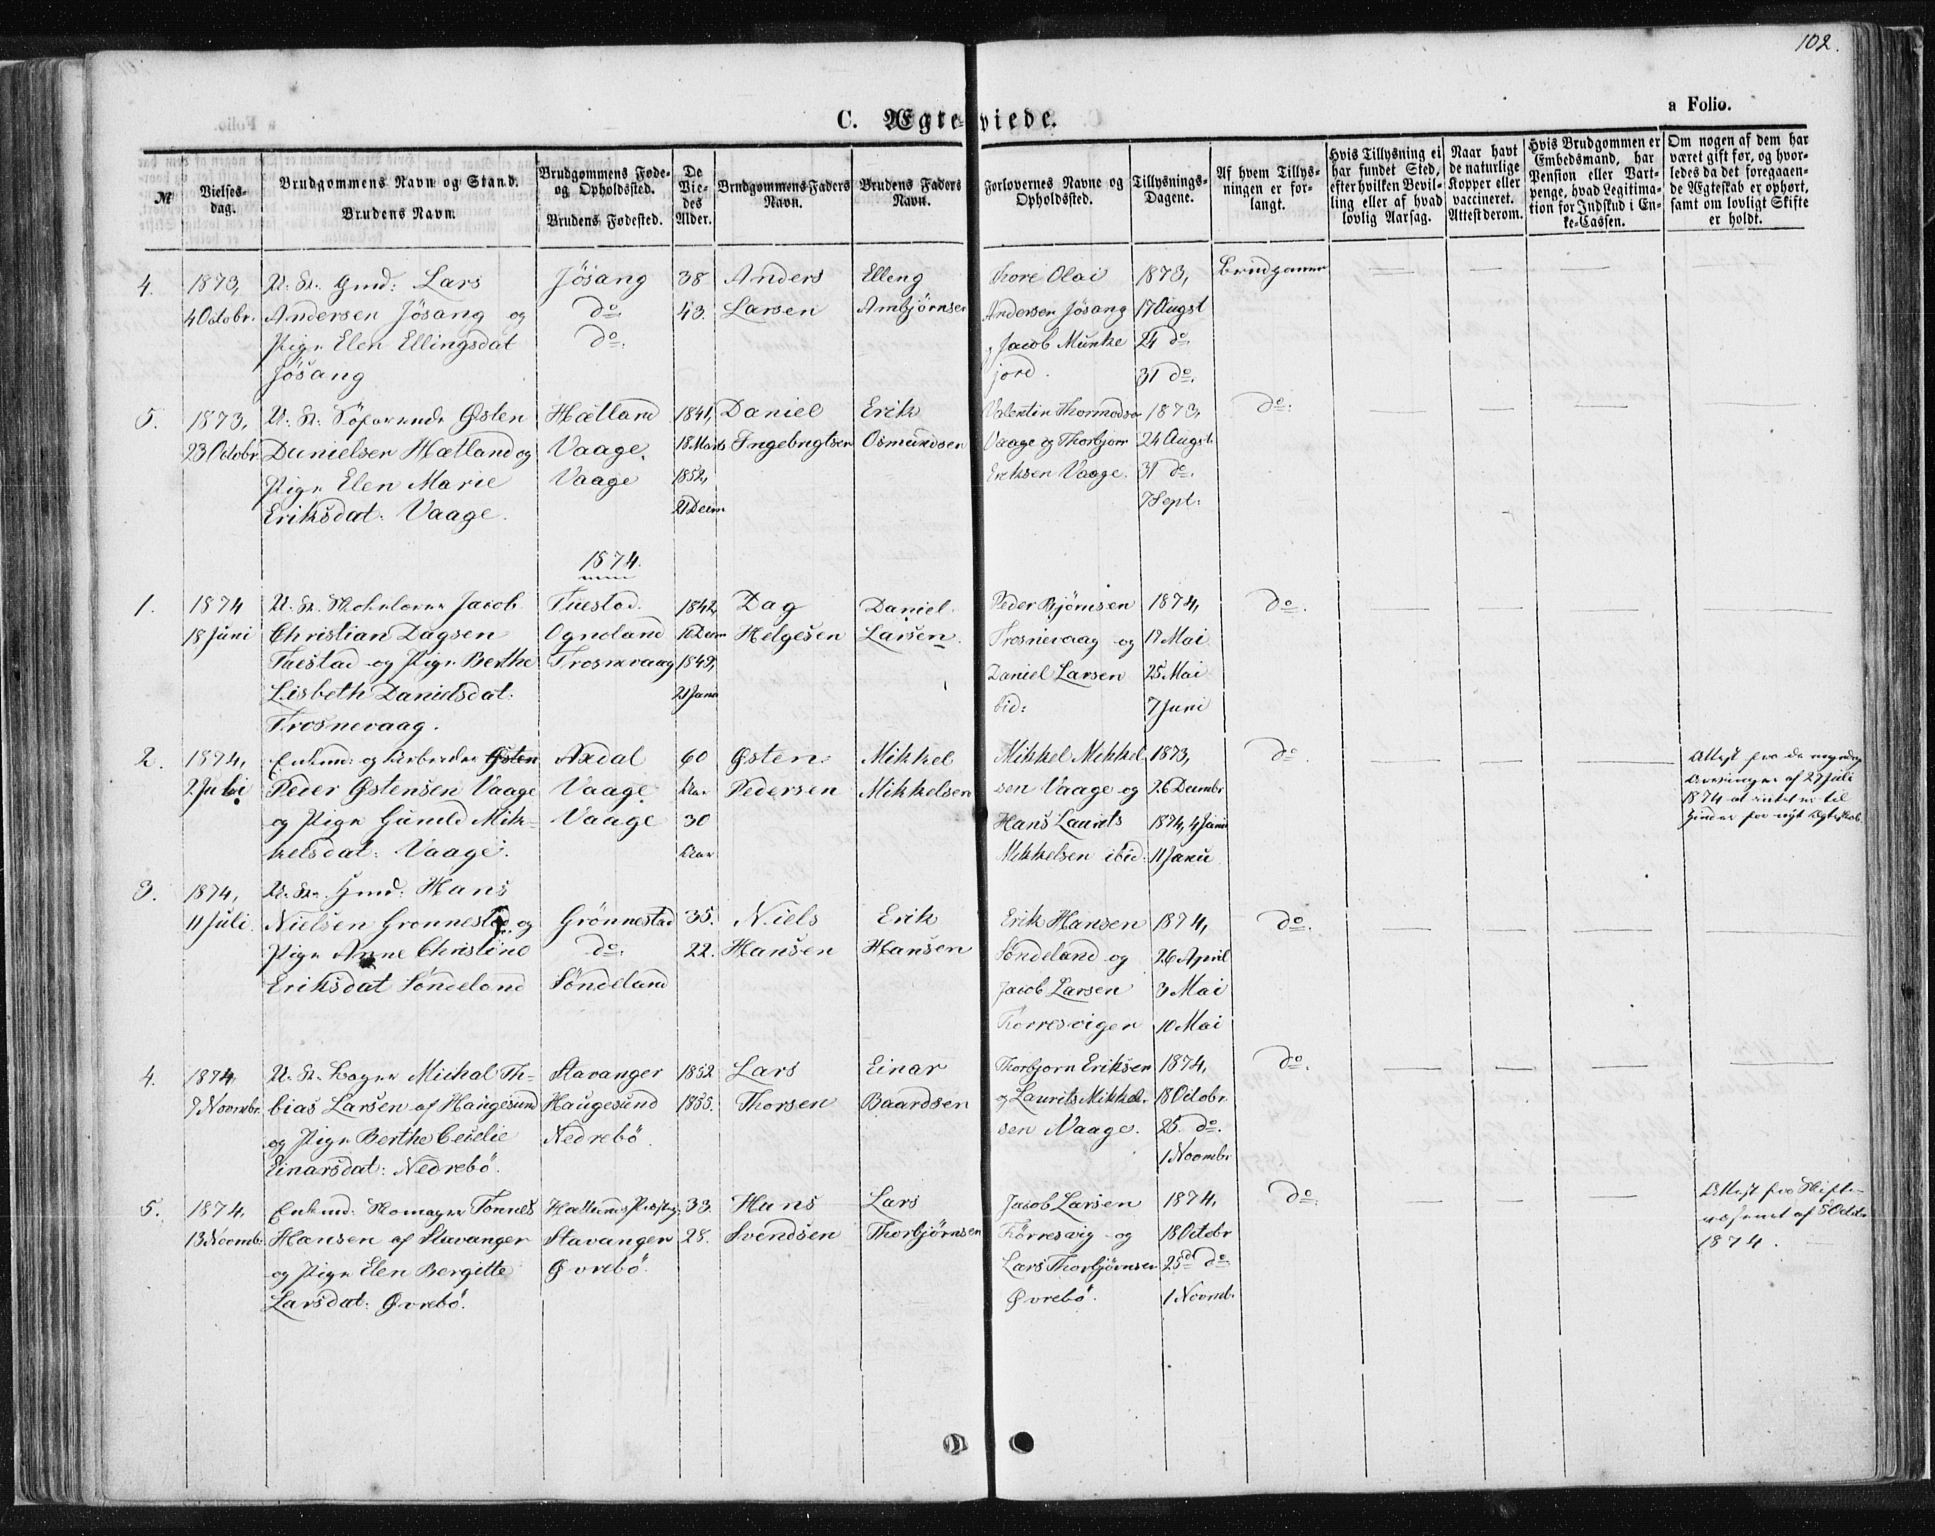 102.
C. Ægteviede.
a Folio.
№
Vielses-
dag.
Brudgommens Navn og Stand.
Brudens Navn.
Brudgommens Føde-
og Opholdssted.
Brudens Fødested.
De
Vie-
des
Alder.
Brudgommens Faders
Navn.
Brudens Faders
Navn.
Forlovernes Navne og
Opholdssted.
Tillysnings-
Dagene.
Af hvem Tillys-
ningen er for-
langt.
Hvis Tillysning ei
har fundet Sted,
efter hvilken Bevil-
ling eller af hvad
lovlig Aarsag.
Naar havt
de naturlige
Kopper eller
vaccineret.
Attest derom.
Hvis Brudgommen er
Embedsmand, har
Pension eller Vart-
penge, hvad Legitima-
tion for Indskud i En-
ke-Cassen.
Om nogen af dem har
været gift før, og hvor-
ledes da det foregaaen-
de Ægteskab er ophørt,
samt om lovligt Skifte
er holdt.
4. 1873, U. K. Gmd: Lars Jösang 38 Anders Elleng Thore Olai 1873, Brudgommen
4 Octobr. Andersen Jösang og do. 43. Larsen Ambjörnsen Andersen Jösang 17 Augst
Pige Elen Ellingsdat do. Jacob Muntke 24 do.
Jösang jord. 31 do.
5. 1873, U. K. Söfarende Østen Hætland 1841, Daniel Erik Valentin Thormodsen 1873, do.
23 Octobr. Danielsen Hætland og Vaage. 18 Marts Ingebrigtsen Osmundsen Vaage og Thorbjörn 24 Augst.
Pige Elen Marie Vaage 1852, Eriksen Vaage. 31 do.
Eriksdat: Vaage. 21 7 Sept.
1874.
1. 1874 U. K. Jacob Tuestad. 1842, Dag Daniel Peder Björnsen 1874, do.
18 Juni Christian Dagsen Ognoland Helgesen Larsen. Trosnevaag og 17 Mai
Tuestad og Pige Berthe Trosnevaag 1849, Daniel Larsen 25 Mai
Lisbeth Danielsdat: 21 Janu ibid: 7 Juni
Trosnevaag.
2. 1874, Enkemd: og Østen Axdal 60 Østen Mikkel Mikkel Mikkel 1873, do. Attest fra
2 Juli Peder Østensen Vaage Vaage Aar Pedersen Mikkelsen sen Vaage og 26 Decmbr af 27 Juli
og Pige Gunild Mik- Vaage 30 Hans Laurits 1874, 4 Janu 1874 at intet er til
kelsdat: Vaage. Aar Mikkelsen ibid: 11 Janu. Hinder for nyt Ægteskab.
3. 1874, U. K. Gmd: Hans
11 Juli Nielsen Grønnestad og Grönnestad 35. Niels Erik Erik Hansen 1874, do.
Pige Anne Christine do. 22. Hansen Hansen Söndeland og 26 April
Eriksdat Söndeland Söndeland Jacob Larsen 3 Mai
Törresvigen 10 Mai
4. 1874, U. K. Michal Th- Stavanger 1852 Lars Einar Thorbjorn Eriksen 1874, do.
7 Novmbr. bias Larsen af Haugesund Haugesund 1855. Thorsen Baardsen og Laurits Mikkel- 18 Octobr.
og Pige Berthe Cecelie Nedrebö. sen Vaage. 25. do.
Einarsdat: Nedrebö. 1 Novmbr
5. 1874, Enkemd: Skomager Tønnes 33. Hans Lars Jacob Larsen 1874, do. Attest fra Skifte-
13 Novmbr Hansen af Stavanger Stavanger 28. Svendsen Thorbjörnsen Törresvig og 18 Octobr af 5 Octbr
og Pige Elen Bergitte Øvrebö. Lars Thorbjörnsen 25 do. 1874.
Larsdat: Øvrebö. Øvrebö. 1 Novmb.